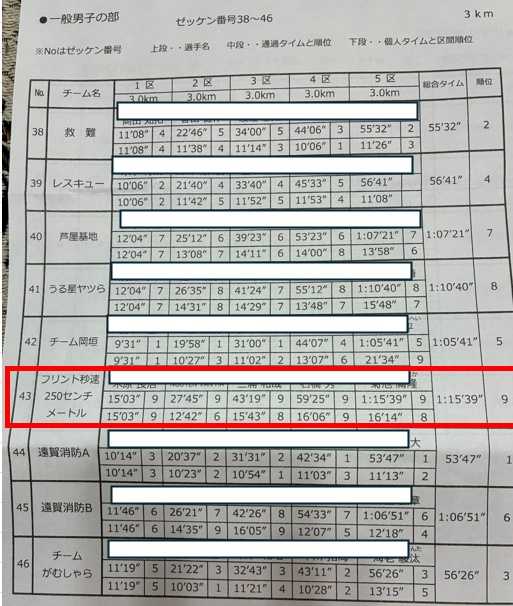 ●一般男子の部 ゼッケン番号38～46 3km
※Noはゼッケン番号 上段・・選手名 中段・・通過タイムと順位 下段・・個人タイムと区間順位
No. チーム名 1区 2区 3区 4区 5区 総合タイム 順位
3.0km 3.0km 3.0km 3.0km 3.0km
38 救難 55'32" 2
11'08" 4 22'46" 5 34'00" 5 44'06" 3 55'32" 2
11'08" 4 11'38" 4 11'14" 3 10'06" 1 11'26" 3
39 レスキュー 56'41" 4
10'06" 2 21'40" 4 33'40" 4 45'33" 5 56'41"
10'06" 2 11'42" 5 11'52" 5 11'53" 4 11'08"
40 芦屋基地 1:07'21" 7
12'04" 7 25'12" 6 39'23" 6 53'23" 6 1:07'21" 7
12'04" 7 13'08" 7 14'11" 6 14'00" 8 13'58" 6
41 うる星ヤツら 1:10'40" 8
12'04" 7 26'35" 8 41'24" 7 55'12" 8 1:10'40" 8
12'04" 7 14'31" 8 14'29" 7 13'48" 7 15'48" 7
42 チーム岡垣 1:05'41" 5
9'31" 1 19'58" 1 31'00" 1 44'07" 4 1:05'41" 5
9'31" 1 10'27" 3 11'02" 2 13'07" 6 21'34" 9
43 フリント秒速 1:15'39" 9
250センチ
メートル
15'03" 9 27'45" 9 43'19" 9 59'25" 9 1:15'39" 9
15'03" 9 12'42" 6 15'43" 8 16'06" 9 16'14" 8
大
44 遠賀消防A 53'47" 1
10'14" 3 20'37" 2 31'31" 2 42'34" 1 53'47" 1
10'14" 3 10'23" 2 10'54" 1 11'03" 3 11'13" 2
45 遠賀消防B 1:06'51" 6
11'46" 6 26'21" 7 42'26" 8 54'33" 7 1:06'51" 6
11'46" 6 14'35" 9 16'05" 9 12'07" 5 12'18" 4
46 チーム 56'26" 3
がむしゃら
11'19" 5 21'22" 3 32'43" 3 43'11" 2 56'26" 3
11'19" 5 10'03" 1 11'21" 4 10'28" 2 13'15" 5